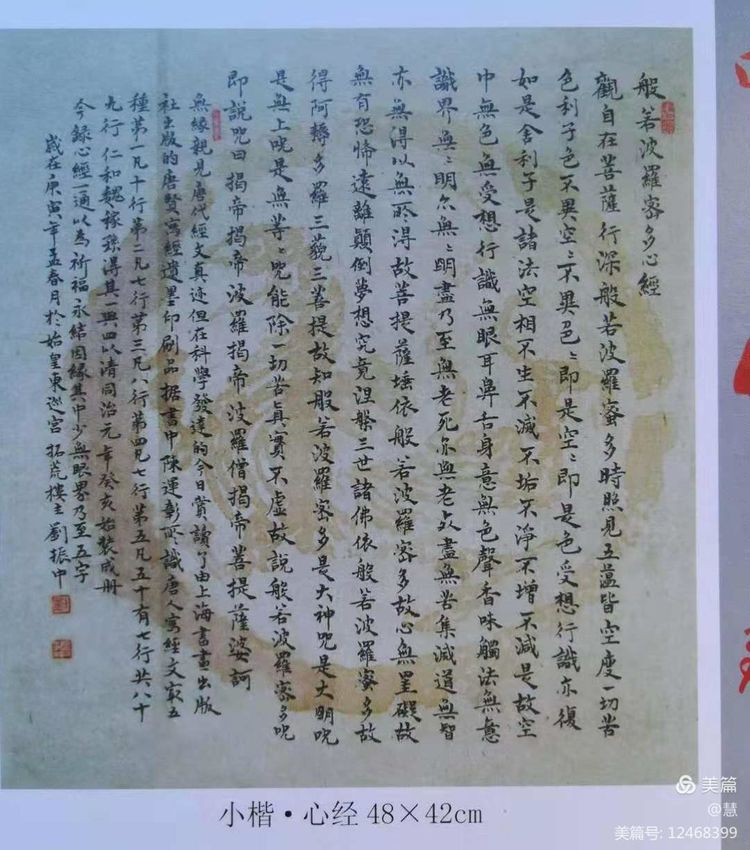 般若波羅密多心經
觀自在菩薩行深般若波羅蜜多時照見五蘊皆空度一切苦
色利子色不異空〻不異色〻即是空〻即是色受想行識亦復
如是舍利子是諸法空相不生不滅不垢不淨不增不減是故空
中無色無受想行識無眼耳鼻舌身意無色聲香味觸法無意
識界無〻明亦無〻明盡乃至無老死亦無老死盡無苦集滅道無智
亦無得以無所得故菩提薩埵依般若波羅密多故心無罣礙故
無有恐怖遠離顛倒夢想究竟涅槃三世諸佛依般若波羅蜜多故
得阿耨多羅三藐三菩提故知般若波羅密多是大神咒是大明咒
是無上咒是無等〻咒能除一切苦真實不虛故說般若波羅密多咒
即說咒曰揭帝揭帝波羅揭帝波羅僧揭帝菩提薩婆訶
無緣親見唐代經文真迹但在科學發達的今日賞讀了由上海書畫出版
社出版的唐賢寫經遺墨印刷品據書中陳運彰所識唐人寫經文最五
種第一凡十行第二凡七行第三凡八行第四凡七行第五凡五十有七行共八十
九行仁和魏稼孫得其一與四以清同治元年癸亥始裝成册
今録心經一通以為祈福永結因緣其中少無眼界乃至五字
歲在庚寅年孟春月於始皇東巡宮拓荒樓主劉振中
小楷·心经 48×42cm
美篇
@慧
美篇号: 12468399